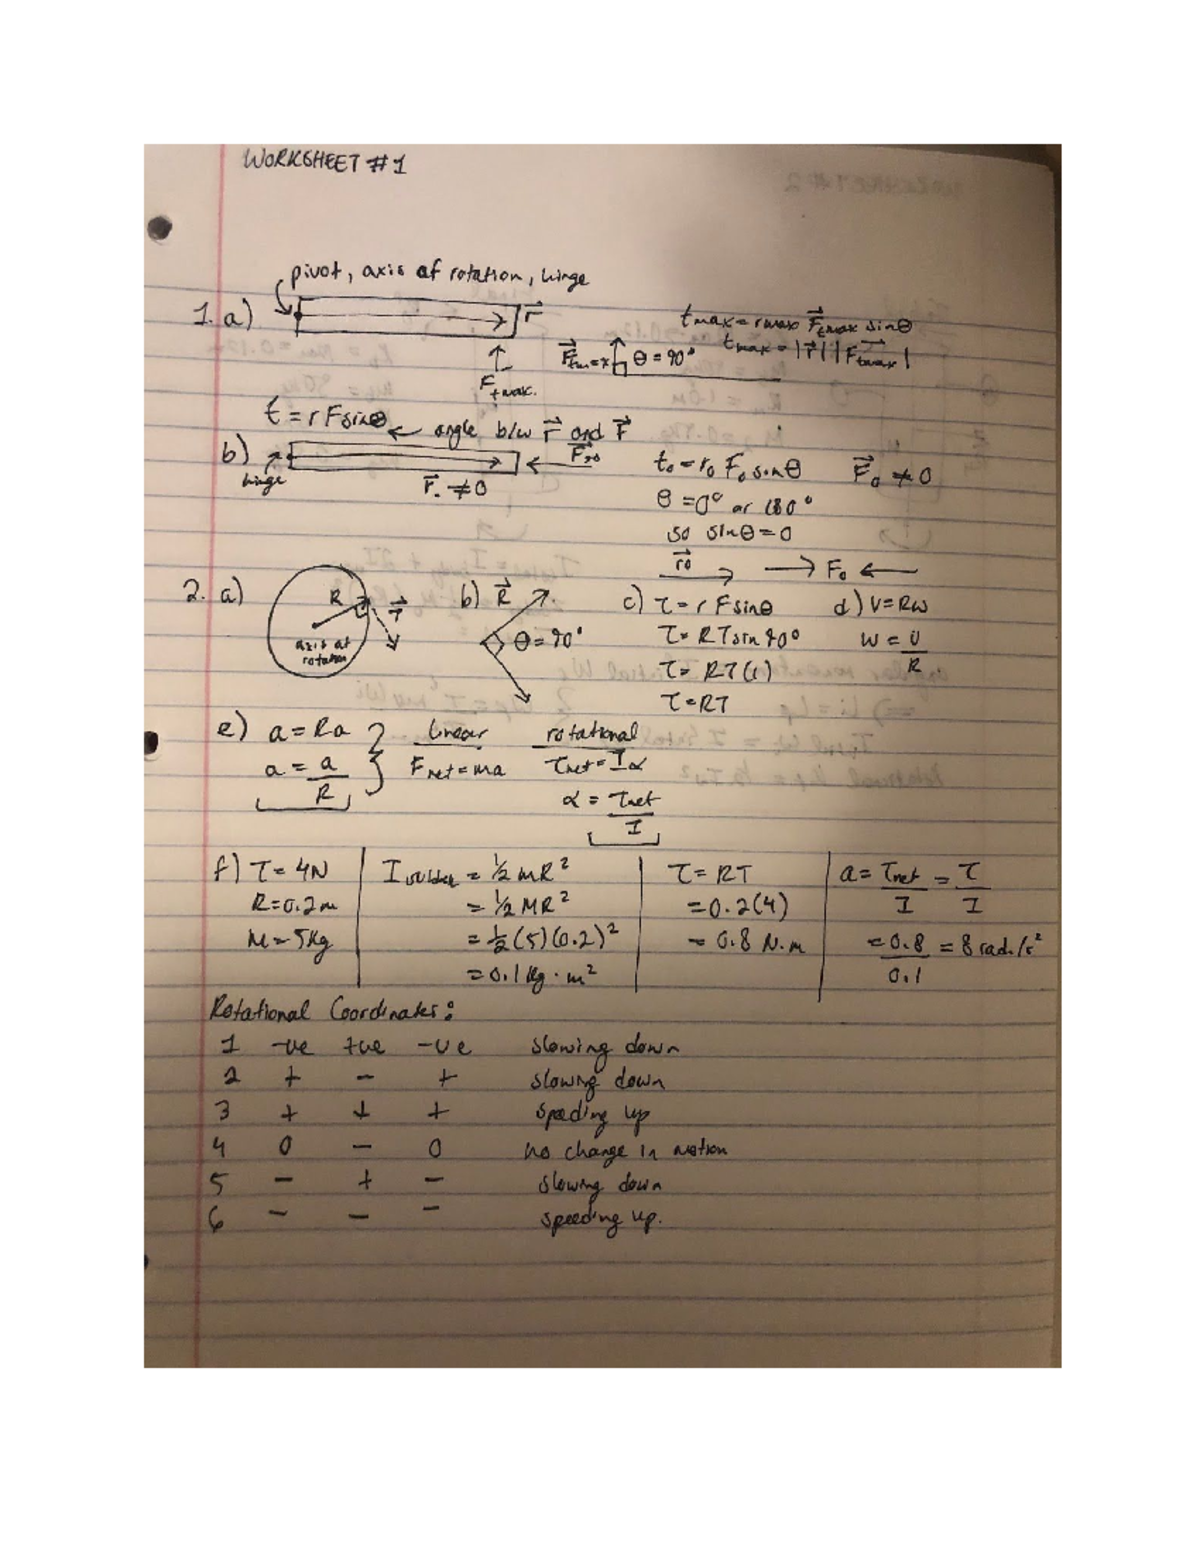 WORKSHEET #1
pivot, axis of rotation, hinge
1. a) r⃗
F tmax.
F⃗tmax θ = 90°
tmax = rmax F⃗tmax sinθ
tmax = |r⃗| |F⃗tmax|
t = r F sinθ ← angle b/w r⃗ and F⃗
b) hinge r⃗. ≠ 0 F⃗>0
t₀ = r₀ F₀ sinθ F⃗₀ ≠ 0
θ = 0° or 180°
so sinθ = 0
r⃗0 → F₀ ←
2. a) R T⃗
axis of
rotation
b) R⃗ θ = 90°
c) τ = r F sinθ
τ = RT sin 90°
τ = RT (1)
τ = RT
d) V = Rw
w = v/R
e) a = Ra
a = a/R
linear
Fnet = ma
rotational
τnet = Iα
α = τnet/I
f) T = 4N
R = 0.2m
M = 5kg
I = ½ mR²
= ½ MR²
= ½ (5)(0.2)²
= 0.1 kg · m²
τ = RT
= 0.2(4)
= 0.8 N·m
a = τnet/I = τ/I
= 0.8/0.1 = 8 rad./s²
Rotational Coordinates:
1 -ve +ve -ve slowing down
2 + - + slowing down
3 + + + speeding up
4 0 - 0 no change in motion
5 - + - slowing down
6 - - - speeding up.